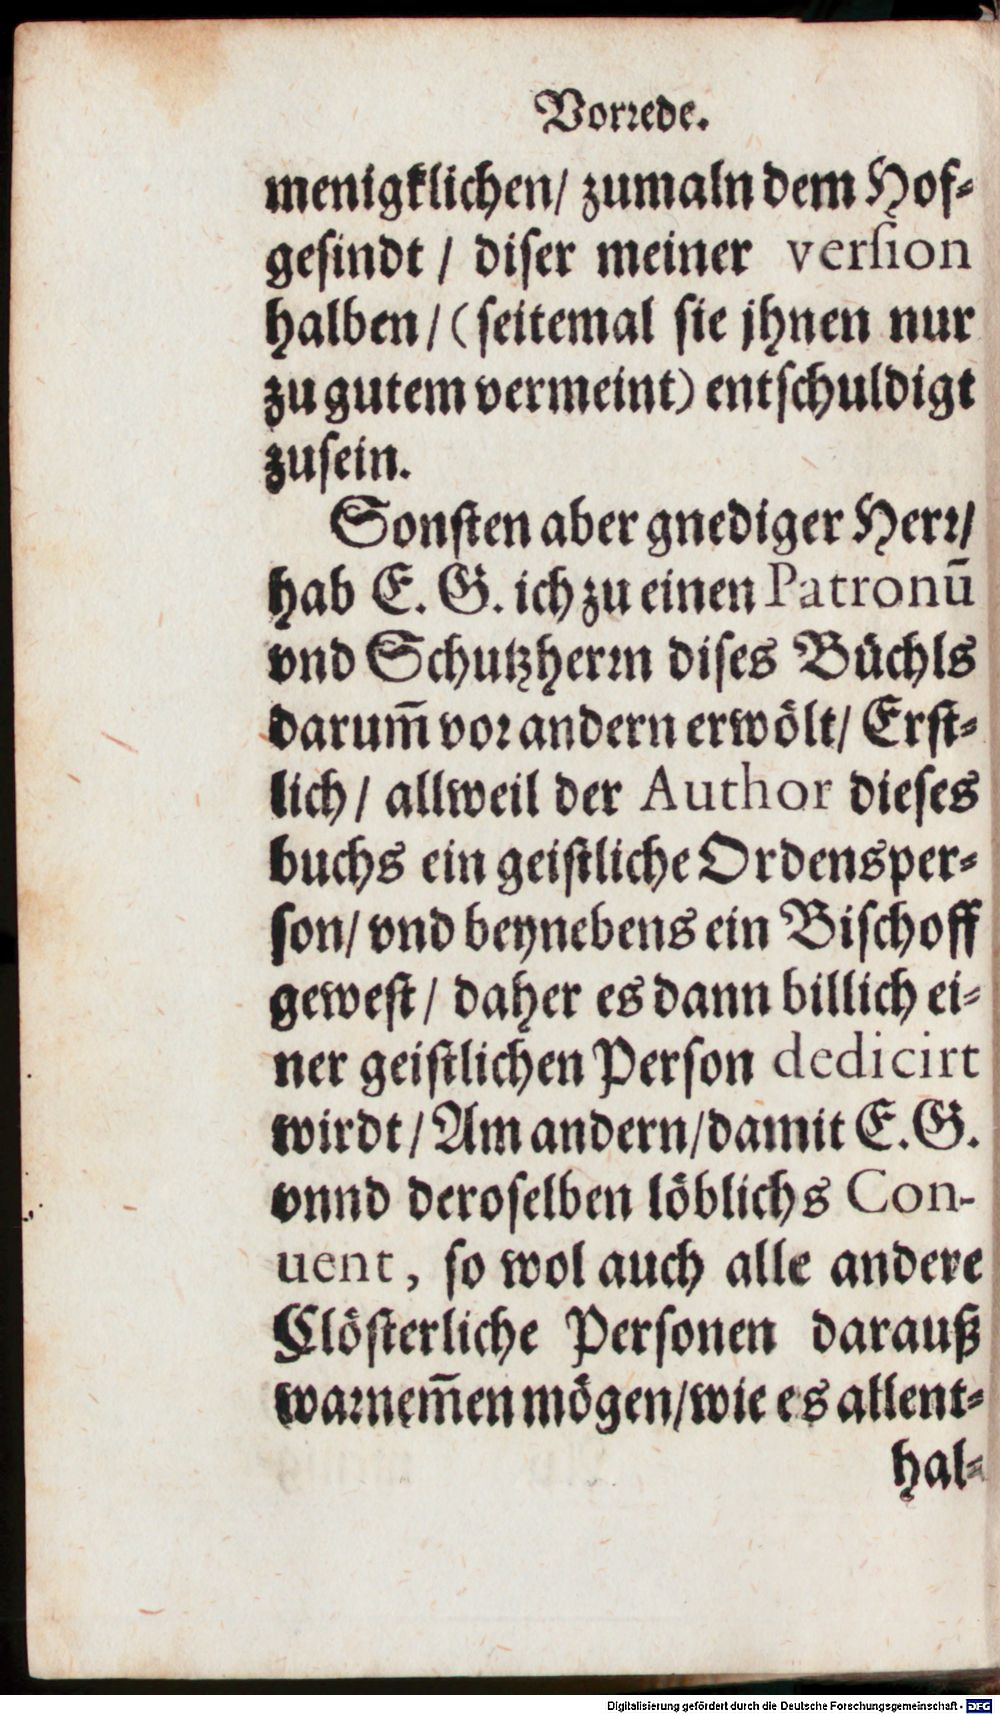 Vorꝛede.
menigklichen/ zumaln dem Hof⸗
geſindt / diſer meiner verſion
halben/ (ſeitemal ſie jhnen nur
zu gutem vermeint) entſchuldigt
zuſein.
Sonſten aber gnediger Herꝛ/
hab E. G. ich zu einen Patronū
vnd Schutzherꝛn diſes Büchls
darum̅ voꝛ andern erwölt/ Erſt⸗
lich/ allweil der Author dieſes
buchs ein geiſtliche Ordensper⸗
ſon/ vnd beynebens ein Biſchoff
geweſt/ daher es dann billich ei⸗
ner geiſtlichen Perſon dedicirt
wirdt/ Am andern/ damit E. G.
vnnd deroſelben löblichs Con-
uent, ſo wol auch alle andere
Clöſterliche Perſonen darauß
waꝛnem̅en mögen/ wie es allent⸗
hal⸗
Digitalisierung gefördert durch die Deutsche Forschungsgemeinschaft - DFG